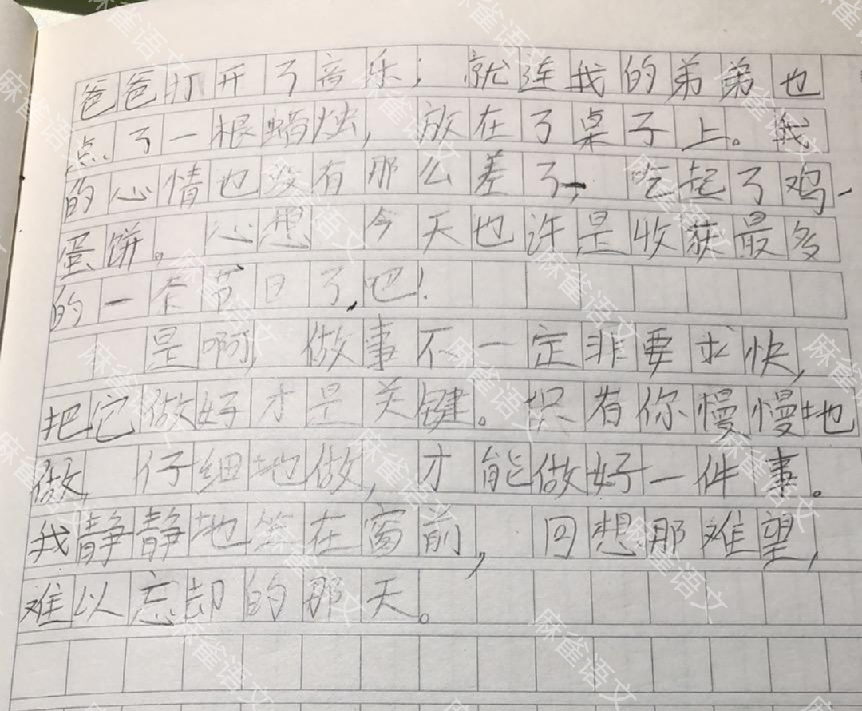 爸爸打开了音乐；就连我的弟弟也
点了一根蜡烛，放在了桌子上。我
的心情也没有那么差了，吃起了鸡
蛋饼。心想 今天也许是收获最多
的一个节日了吧！
是啊，做事不一定非要求快，
把它做好才是关键。只有你慢慢地
做，仔细地做，才能做好一件事。
我静静地坐在窗前，回想那难望，
难以忘却的那天。
麻雀语文